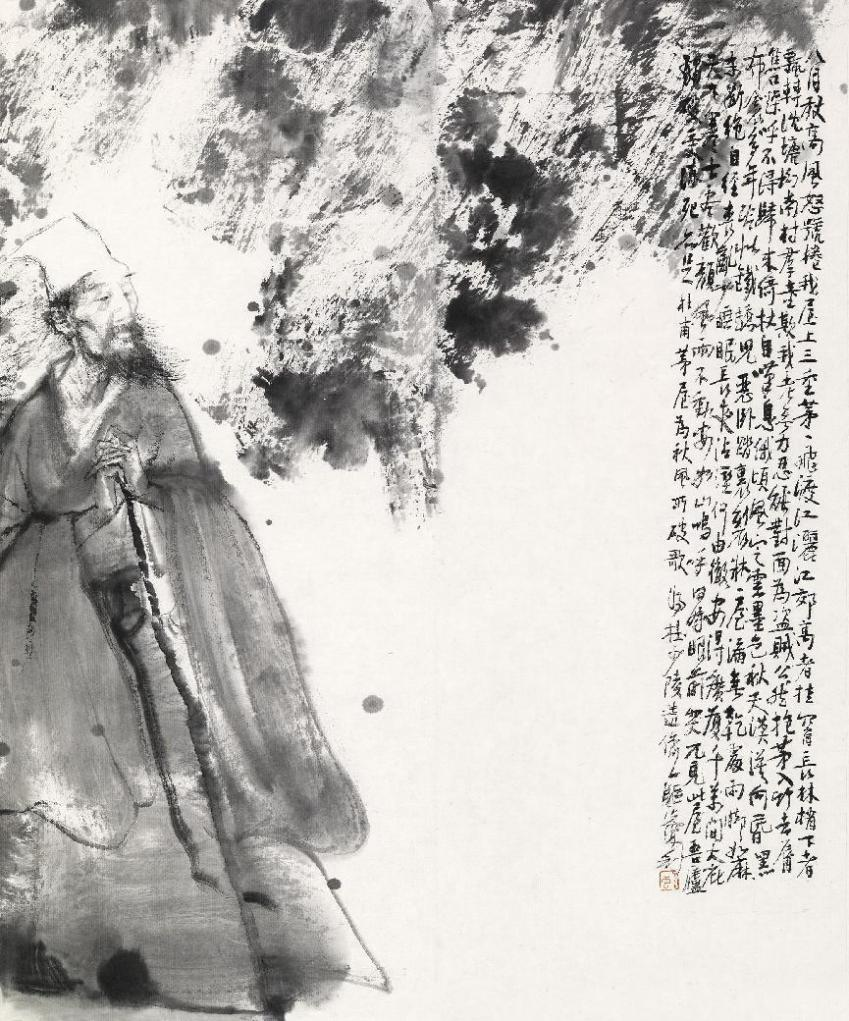 八月秋高風怒號捲我屋上三重茅々飛渡江灑江郊高者挂罥長林梢下者
飄轉沈塘坳南村群童欺我老無力忍能對面為盜賊公然抱茅入竹去脣
焦口燥呼不得歸來倚杖自嘆息俄頃風定雲墨色秋天漠漠向昏黑
布衾多年冷似鐵驕兒惡臥踏裏裂牀々屋漏無乾處雨腳如麻
未斷絕自經喪亂少睡眠長夜沾溼何由徹安得廣廈千萬間大庇
天下寒士盡歡顏風雨不動安如山嗚呼何時眼前突兀見此屋吾廬
獨破受凍死亦足杜甫茅屋為秋風所破歌 杜少陵造像